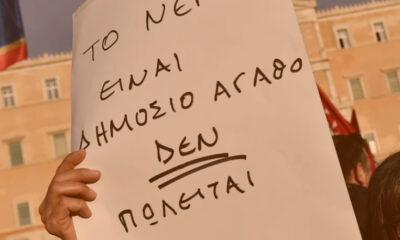 ΤΟ ΝΕΡ
ΕΙΝΑΙ
ΔΗΜΟΣΙΟ ΑΓΑΘΟ
ΔΕΝ
ΠΩΛΕΙΤΑΙ